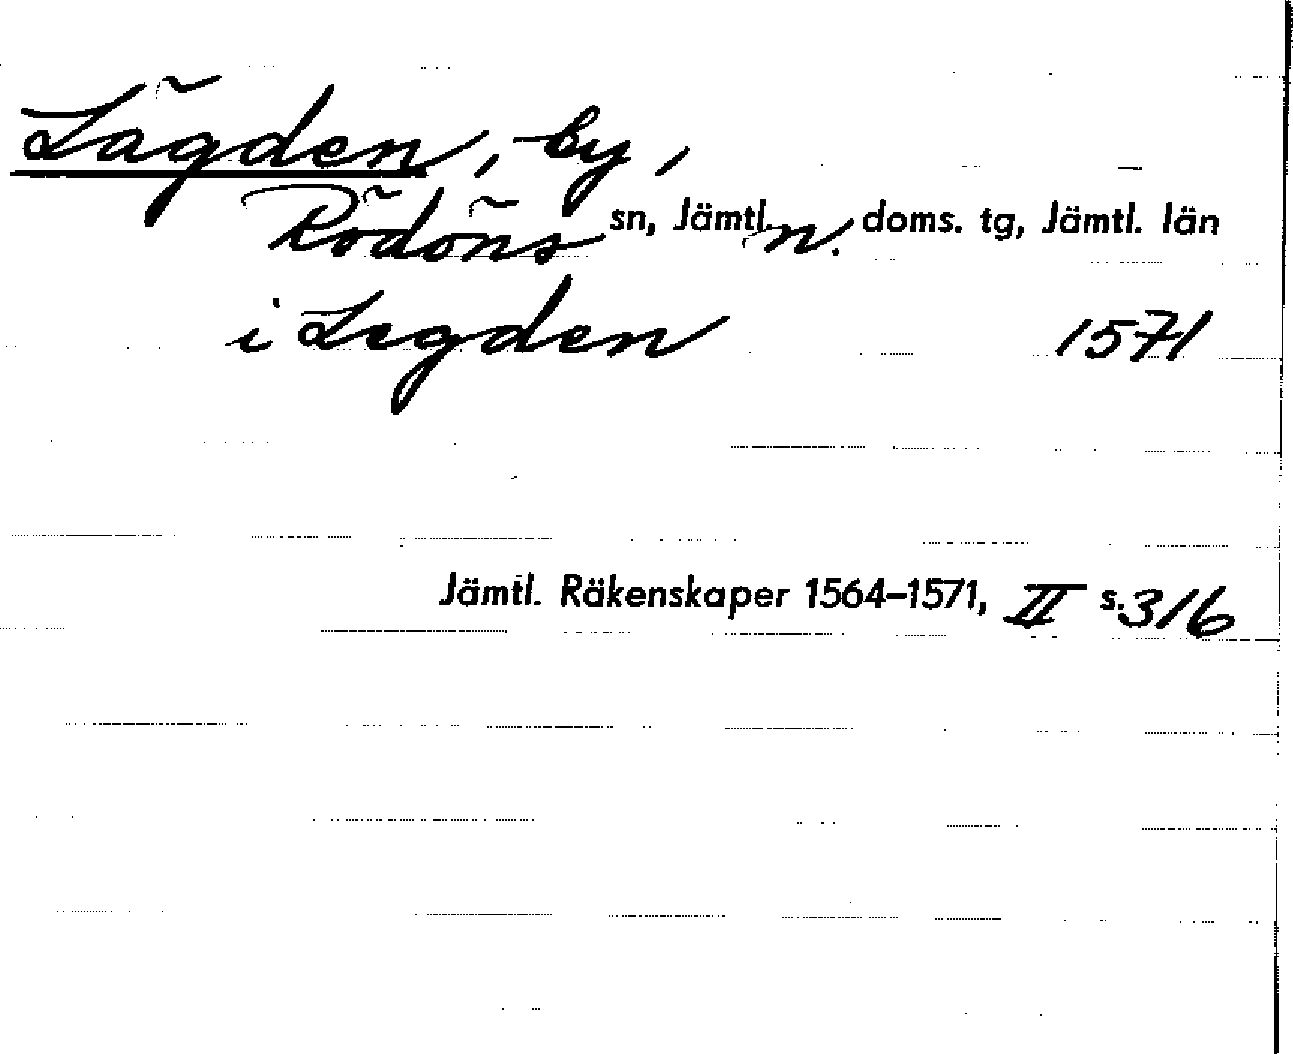 Lägden, by,
Rödöns sn, Jämtl. n. doms. tg, Jämtl. län
i Legden 1571
Jämtl. Räkenskaper 1564–1571, II s. 316